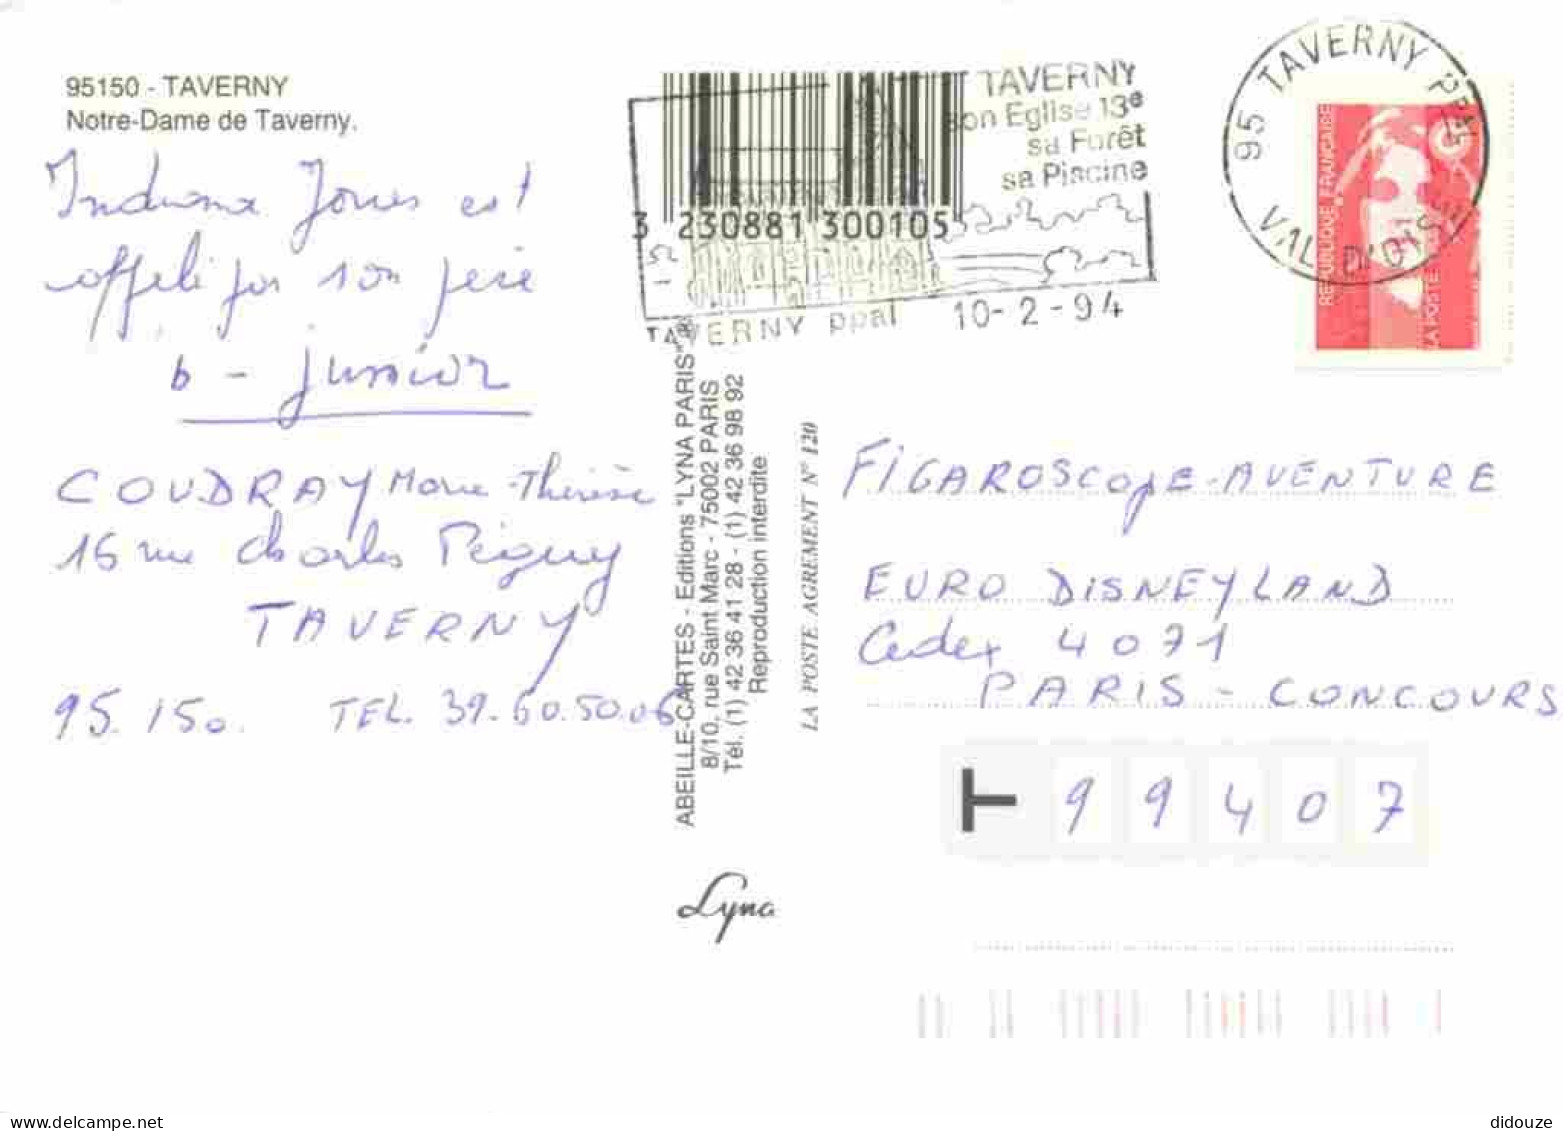 95150 - TAVERNY
Notre-Dame de Taverny.
Indiana Jones est
appelé par son père
b - junior
COUDRAY Marie-Thérèse
16 rue Charles Péguy
TAVERNY
95.150. TEL. 39.60.50.06
3 230881 300105
TAVERNY
son Eglise 13e
sa Forêt
sa Piscine
TAVERNY ppal 10-2-94
95 TAVERNY PPAL
VAL D'OISE
REPUBLIQUE FRANÇAISE
LA POSTE
ABEILLE-CARTES - Editions "LYNA PARIS"
8/10, rue Saint Marc - 75002 PARIS
Tél. (1) 42 36 41 28 - (1) 42 36 98 92
Reproduction interdite
LA POSTE AGREMENT N° 120
Lyna
FIGAROSCOPE-AVENTURE
EURO DISNEYLAND
Cedex 4071
PARIS - CONCOURS
99407
delcampe.net
didouze